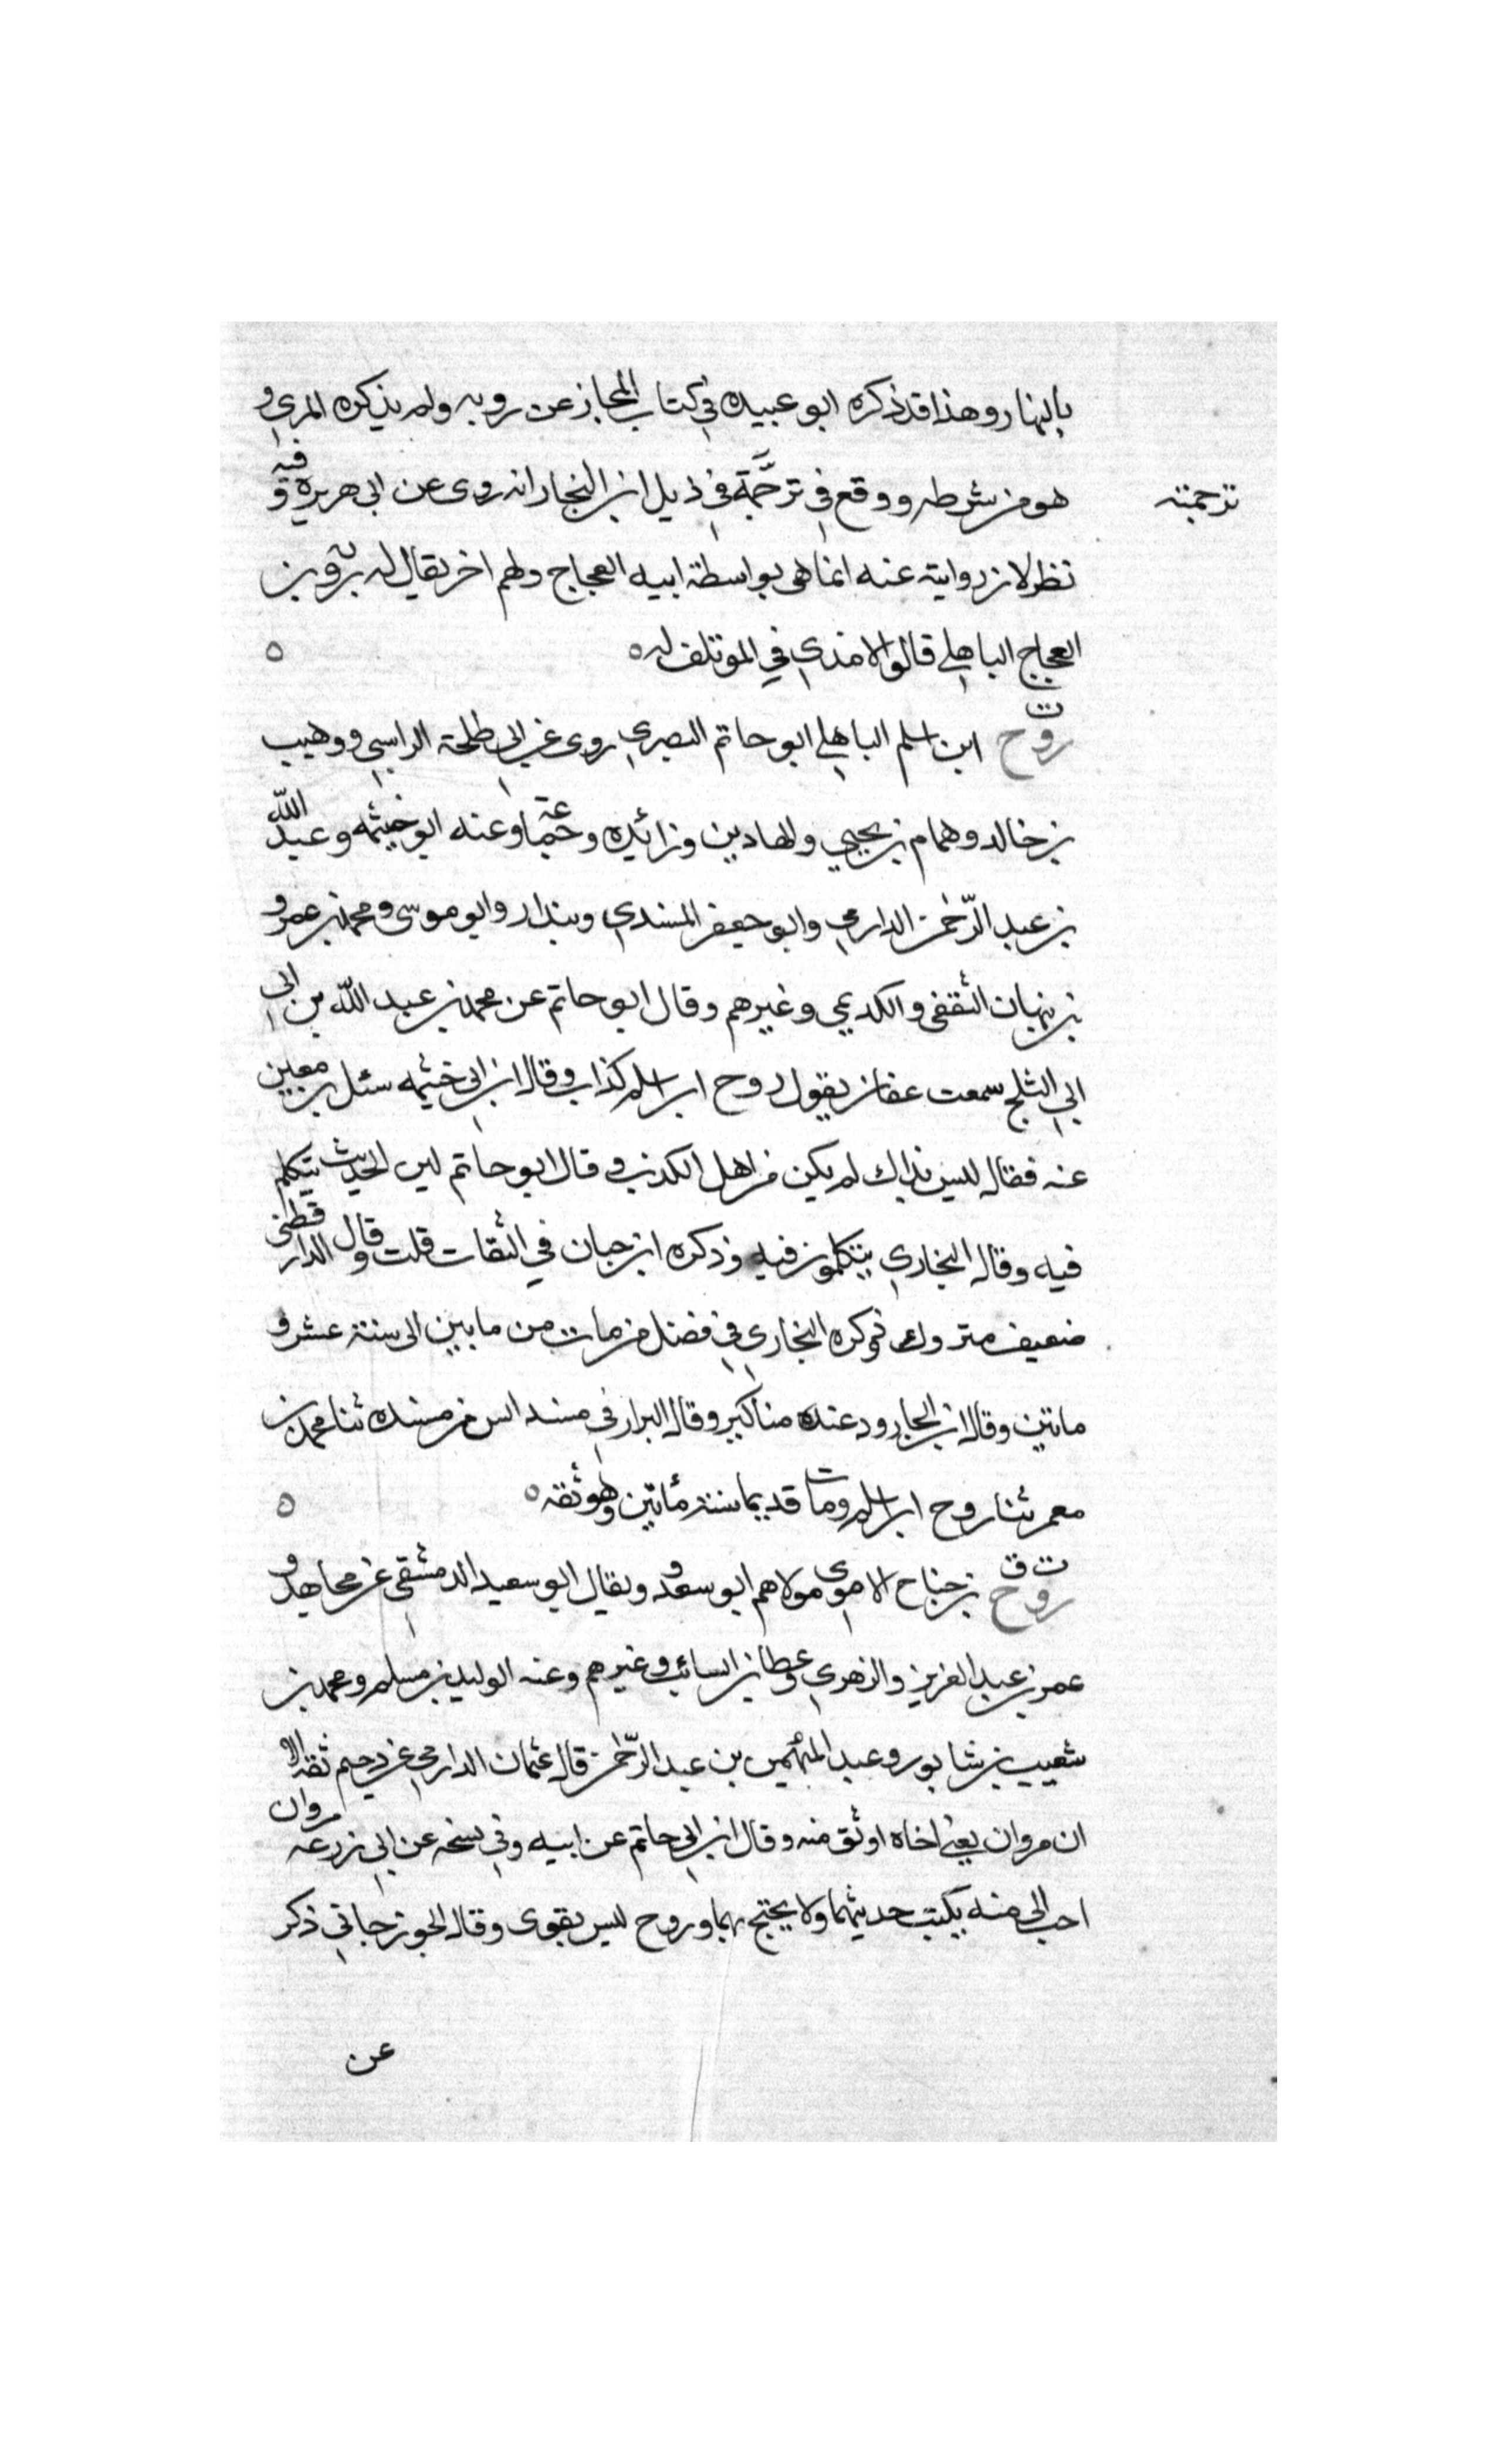 بالنهار وهذا قد ذكره ابو عبيده في كتاب المجاز عن روبه ولم يذكره المزي و
هو من شرطه ووقع في ترجمة في ذيل ابن النجار انه روى عن ابي هريرة وفيه
ترجمته
نظر لان روايته عنه انما هى بواسطة ابيه العجاج ولهم اخر يقال له روبة بن
العجاج الباهلي قاله الامدي في الموتلف له ه ه
ت
روح ابن اسلم الباهلي ابو حاتم البصري روى عن ابي طلحة الراسبي ووهيب
بن خالد وهمام بن يحيي والحمادين وزائده وجماعة وعنه ابو خيثمه وعبد الله
بن عبد الرحمن الدارمي وابو جعفر المسندي وبندار وابو موسى ومحمد بن عمرو
بن نبهان الثقفى والكديمي وغيرهم وقال ابو حاتم عن محمد بن عبد الله بن ابي
ابي الثلج سمعت عفان يقول روح ابن اسلم كذاب وقال ابن ابي خيثمه سئل بن معين
عنه فقال ليس بذاك لم يكن من اهل الكذب و قال ابو حاتم لين الحديث يتكلم
فيه وقال البخاري يتكلمون فيه وذكره ابن حبان في الثقات قلت وقال الدارقطنى
ضعيف متروك وذكره البخاري في فضل من مات من مابين الى سنة عشر و
ماتين وقال ابن الجارود عنده مناكير وقال البزار في مسند انس من مسنده ثنا محمد بن
معمر ثنا روح ابن اسلم ومات قديما سنة مأتين وهو ثقه ه ه
ت ق
روح بن جناح الاموي مولاهم ابو سعد ويقال ابو سعيد الدمشقي عن مجاهد و
عمر بن عبد العزيز والزهري وعطا بن السائب وغيرهم وعنه الوليد بن مسلم ومحمد بن
شعيب بن شابور وعبد المهيمن بن عبد الرحمن قال عثمان الدارمي عن دحيم ثقه الا
ان مروان يعني اخاه اوثق منه وقال ابن ابي حاتم عن ابيه وفي نسخه عن ابي زرعه مروان
احب الى منه يكتب حديثهما ولا يحتج بهما وروح ليس بقوى وقال الجوزجاني ذكر
عن